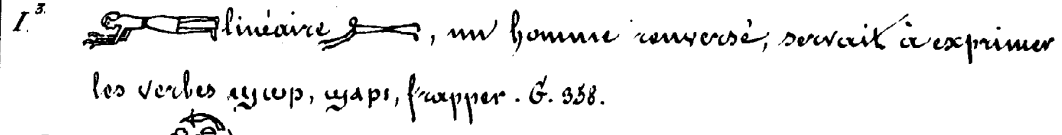 I.³ linéaire, un homme renversé, servait à exprimer
les verbes ϣⲱⲡ, ϣⲁⲣⲓ, frapper. G. 358.